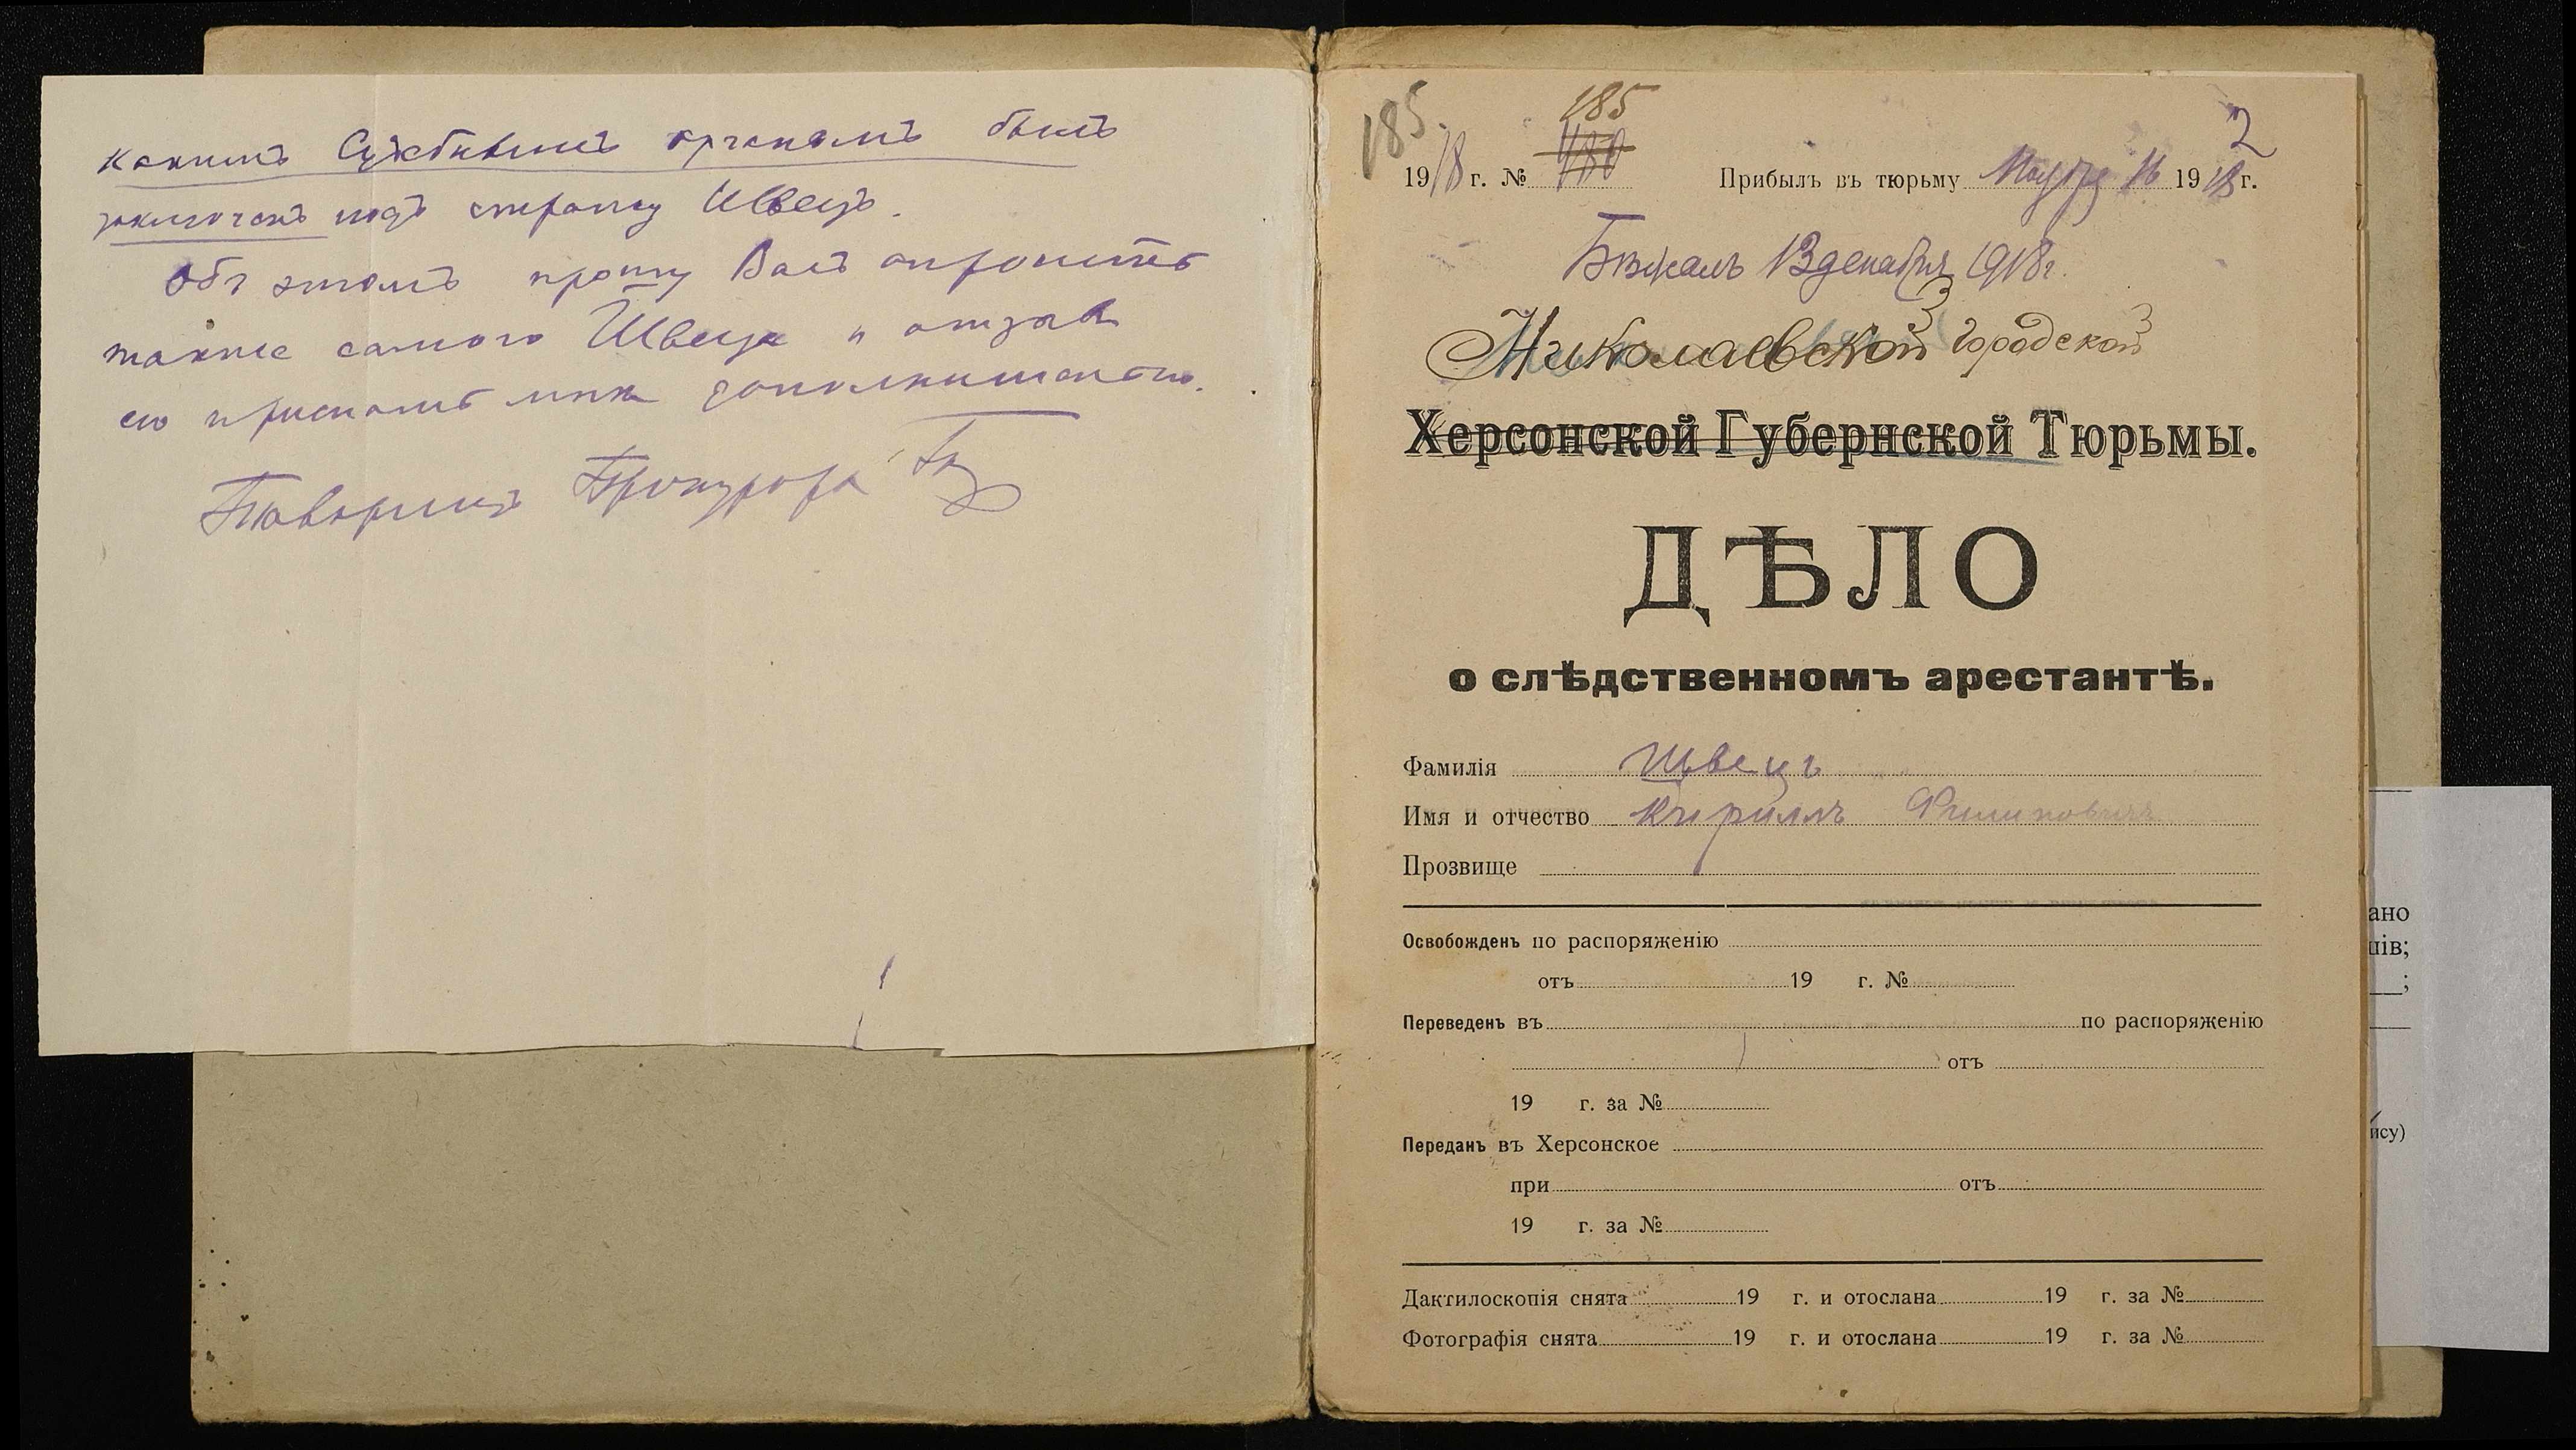 какимъ Судебнымъ органомъ былъ
заключенъ подъ стражу Швецъ.
Объ этомъ прошу Васъ опросить
также самого Швеца и отзывъ
его прислать мнѣ дополнительно.
Товарищъ Прокурора
185
185
2
1918 г. № 480 Прибылъ въ тюрьму 16 1918 г.
Бѣжалъ 13 декабря 1918 г.
Николаевской городской
Херсонской Губернской Тюрьмы.
ДѢЛО
о слѣдственномъ арестантѣ.
Фамилія Швецъ
Имя и отчество Кириллъ Филиповичъ
Прозвище
Освобожденъ по распоряженію
отъ 19 г. №
Переведенъ въ по распоряженію
отъ
19 г. за №
Переданъ въ Херсонское
при отъ
19 г. за №
Дактилоскопія снята 19 г. и отослана 19 г. за №
Фотографія снята 19 г. и отослана 19 г. за №
ано
ів;
;
ису)